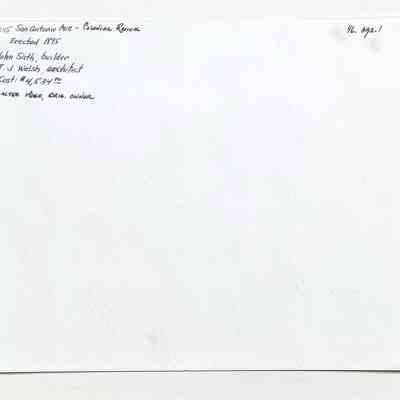 San Antonio Ave - Colonial Revival
Erected 1895
John Sith, builder
T. J. Welsh, architect
Cost: $4,534.00
orig. owner